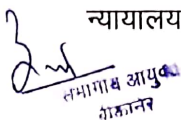 न्यायालय
संभागीय आयुक्त
बीकानेर